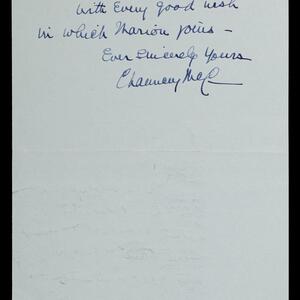 with every good wish
in which Marion joins –
Ever Sincerely Yours
Chauncey